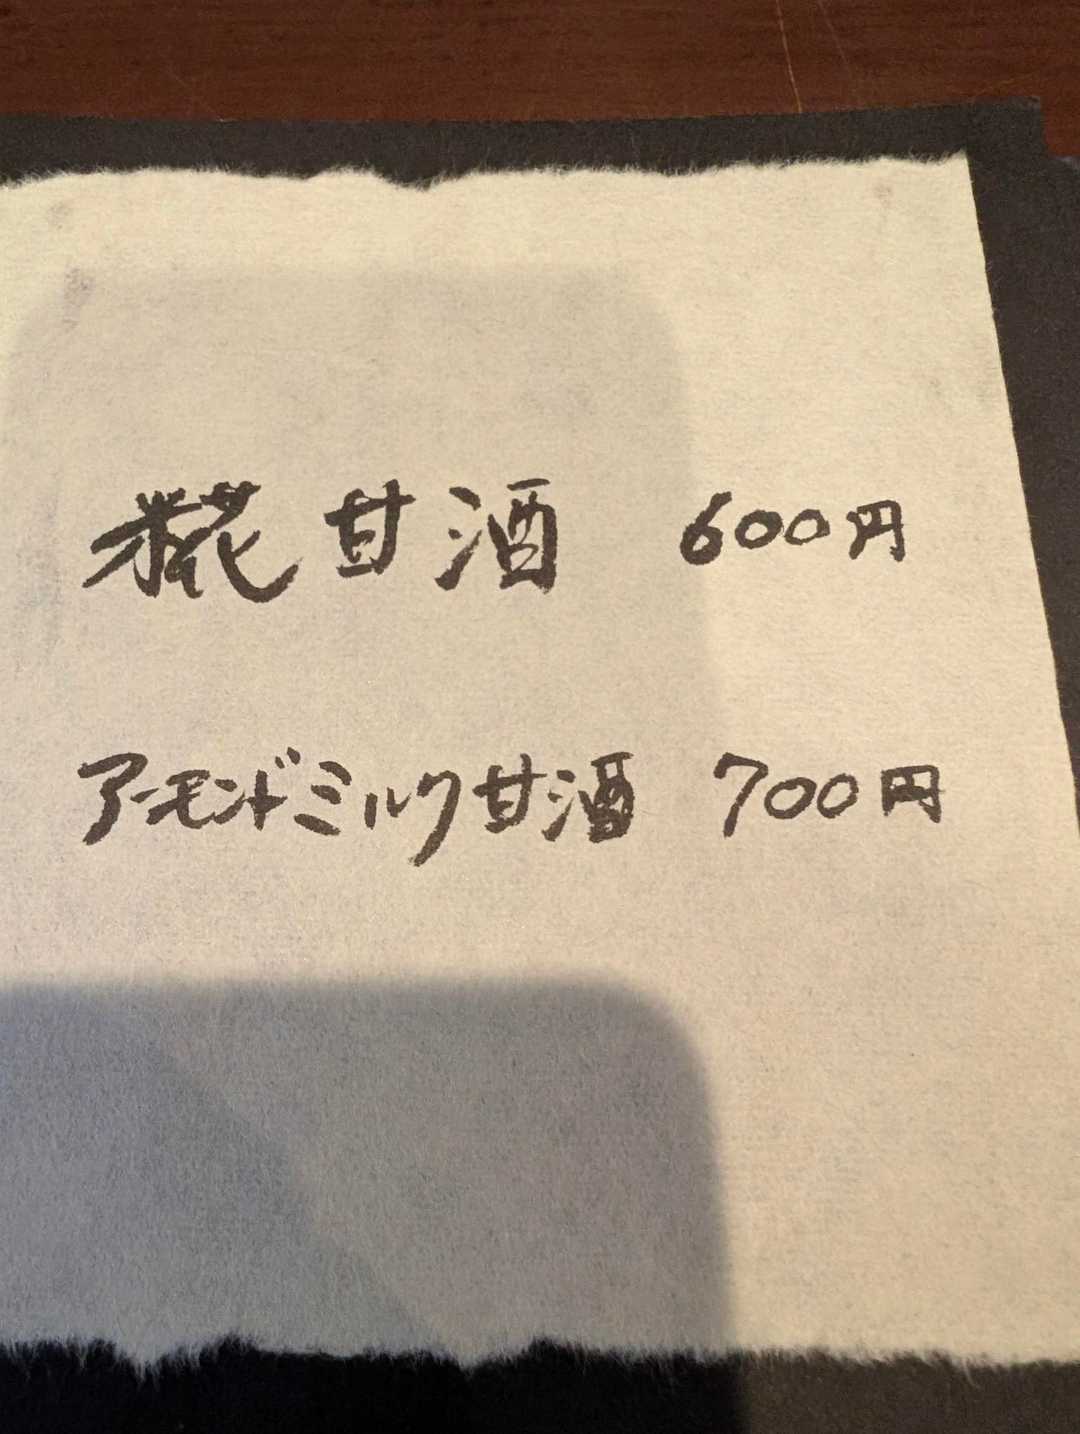 糀甘酒 600円
アーモンドミルク甘酒 700円